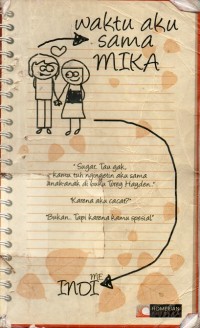 waktu aku
sama
MIKA
"Sugar. Tau gak,
kamu tuh ngingetin aku sama
anak-anak di buku Torey Hayden."
"Karena aku cacat?"
"Bukan. Tapi karena kamu spesial"
ME
INDI
HOMERIAN